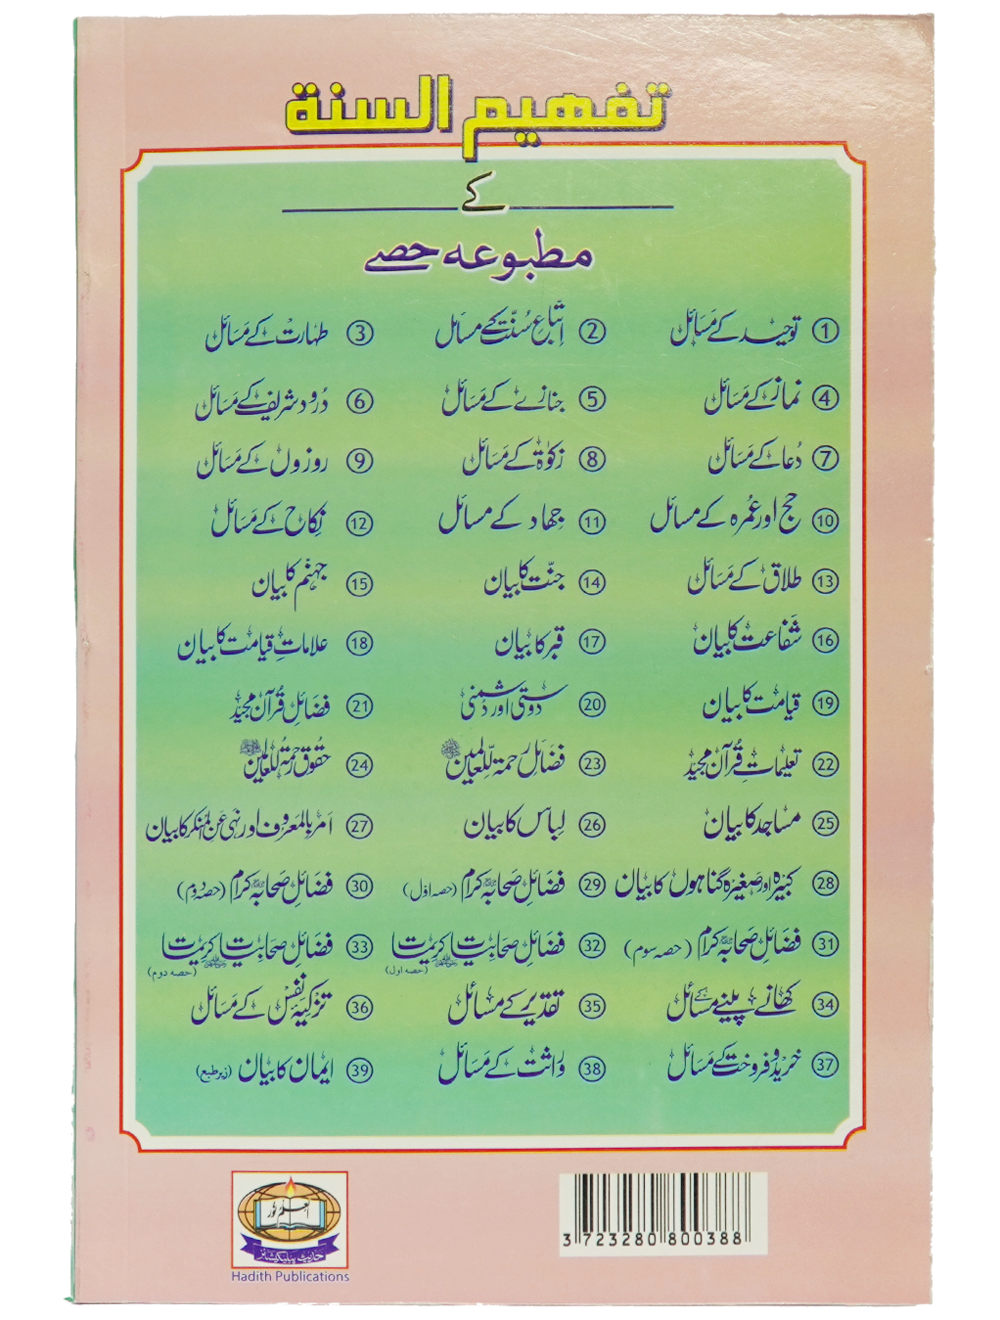 تفهيم السنة
کے
مطبوعہ حصے
1 توحید کے مسائل 2 اتباعِ سُنّت کے مسائل 3 طہارت کے مسائل
4 نماز کے مسائل 5 جنازے کے مسائل 6 درود شریف کے مسائل
7 دُعا کے مسائل 8 زکوٰۃ کے مسائل 9 روزوں کے مسائل
10 حج اور عُمرہ کے مسائل 11 جہاد کے مسائل 12 نکاح کے مسائل
13 طلاق کے مسائل 14 جنّت کا بیان 15 جہنم کا بیان
16 شفاعت کا بیان 17 قبر کا بیان 18 علاماتِ قیامت کا بیان
19 قیامت کا بیان 20 دوستی اور دشمنی 21 فضائلِ قُرآن مجید
22 تعلیماتِ قُرآن مجید 23 فضائل رحمۃ للعالمین ﷺ 24 حقوق رحمۃ للعالمین ﷺ
25 مساجد کا بیان 26 لباس کا بیان 27 امر بالمعروف اور نہی عن المنکر کا بیان
28 کبیرہ اور صغیرہ گناہوں کا بیان 29 فضائلِ صحابہ کرام (حصہ اوّل) 30 فضائلِ صحابہ کرام (حصہ دوم)
31 فضائلِ صحابہ کرام (حصہ سوم) 32 فضائلِ صحابیات کریمات (حصہ اول) 33 فضائلِ صحابیات کریمات (حصہ دوم)
34 کھانے پینے کے مسائل 35 تقدیر کے مسائل 36 تزکیہ نفس کے مسائل
37 خرید و فروخت کے مسائل 38 وراثت کے مسائل 39 ایمان کا بیان (زیر طبع)
العلم نور
حدیث پبلیکیشنز
Hadith Publications
3 723280 800388